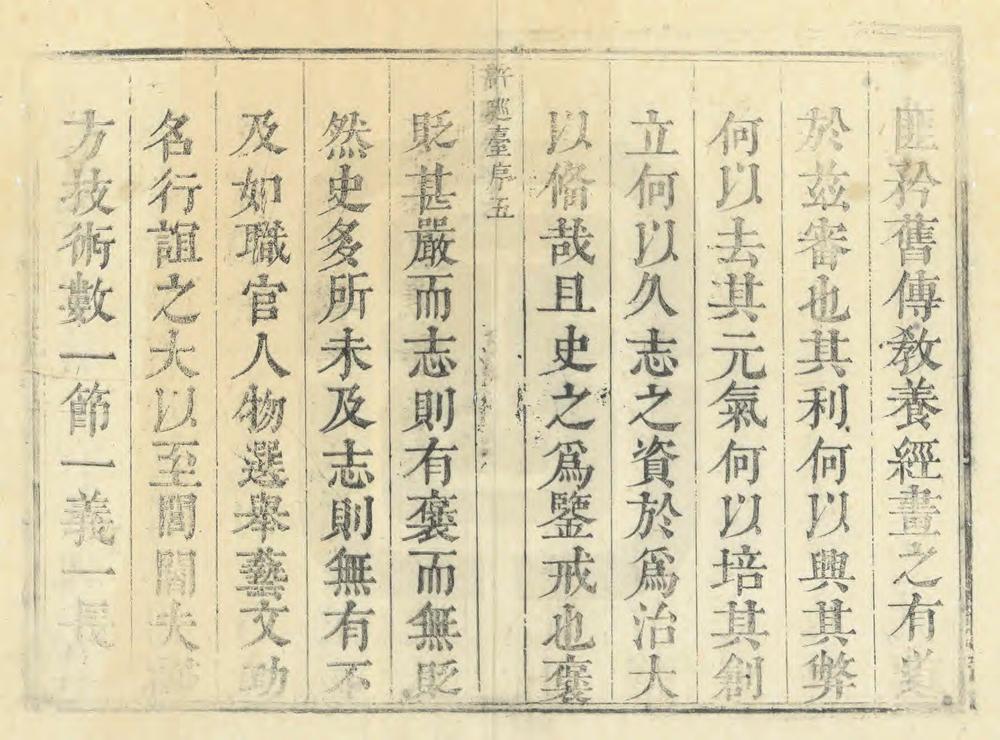 匪矜舊傳敎養經畫之有道
於茲審也其利何以興其弊
何以去其元氣何以培其創
立何以久志之資於爲治大
以脩哉且史之爲鑒戒也褒
許巡臺序五
貶甚嚴而志則有褒而無貶
然史多所未及志則無有不
及如職官人物選舉藝文功
名行誼之大以至閭閻夫
方技術數一節一義一長